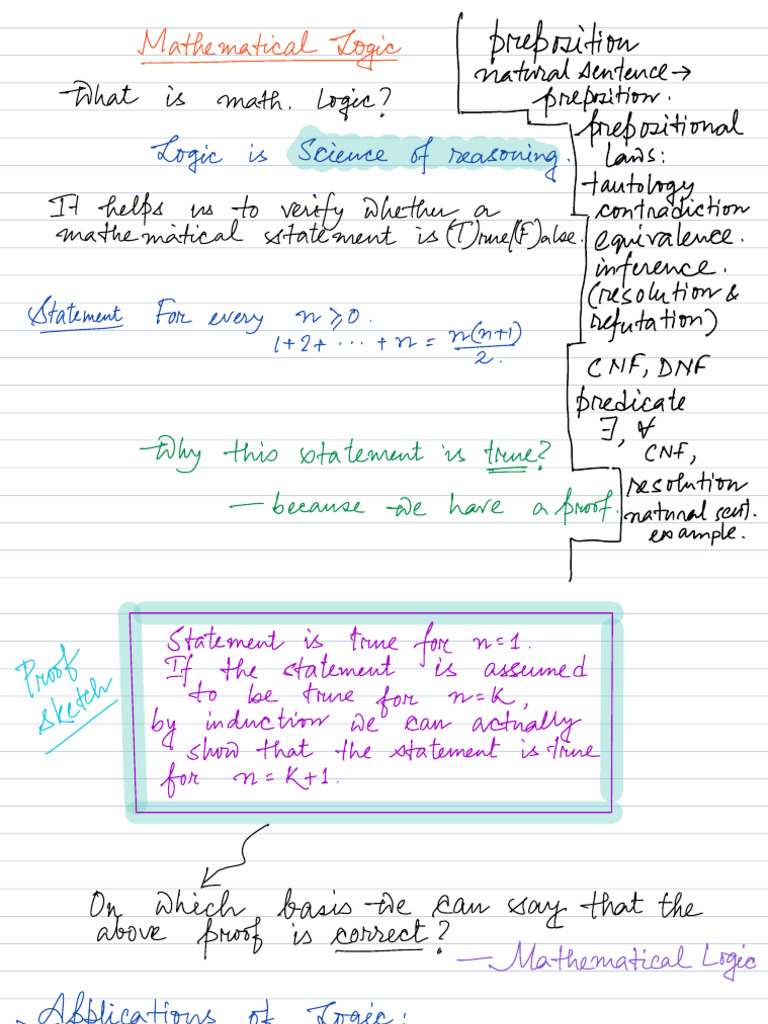 Mathematical Logic
What is math. Logic?
Logic is Science of reasoning.
It helps us to verify whether a
mathematical sstatement is (T)rue/(F)alse.
Statement For every n ≥ 0.
1+2+ ... + n = n(n+1)/2.
Why this statement is true?
— because we have a proof.
preposition
natural sentence →
preposition.
prepositional
laws:
tautology
contradiction
equivalence.
inference.
(resolution &
refutation)
CNF, DNF
predicate
∃, ∀
CNF,
resolution
natural sent.
example.
Proof
sketch
Statement is true for n=1.
If the statement is assumed
to be true for n=K,
by induction we can actually
show that the statement is true
for n = K+1.
On which basis we can say that the
above proof is correct?
— Mathematical Logic
Applications of Logic: